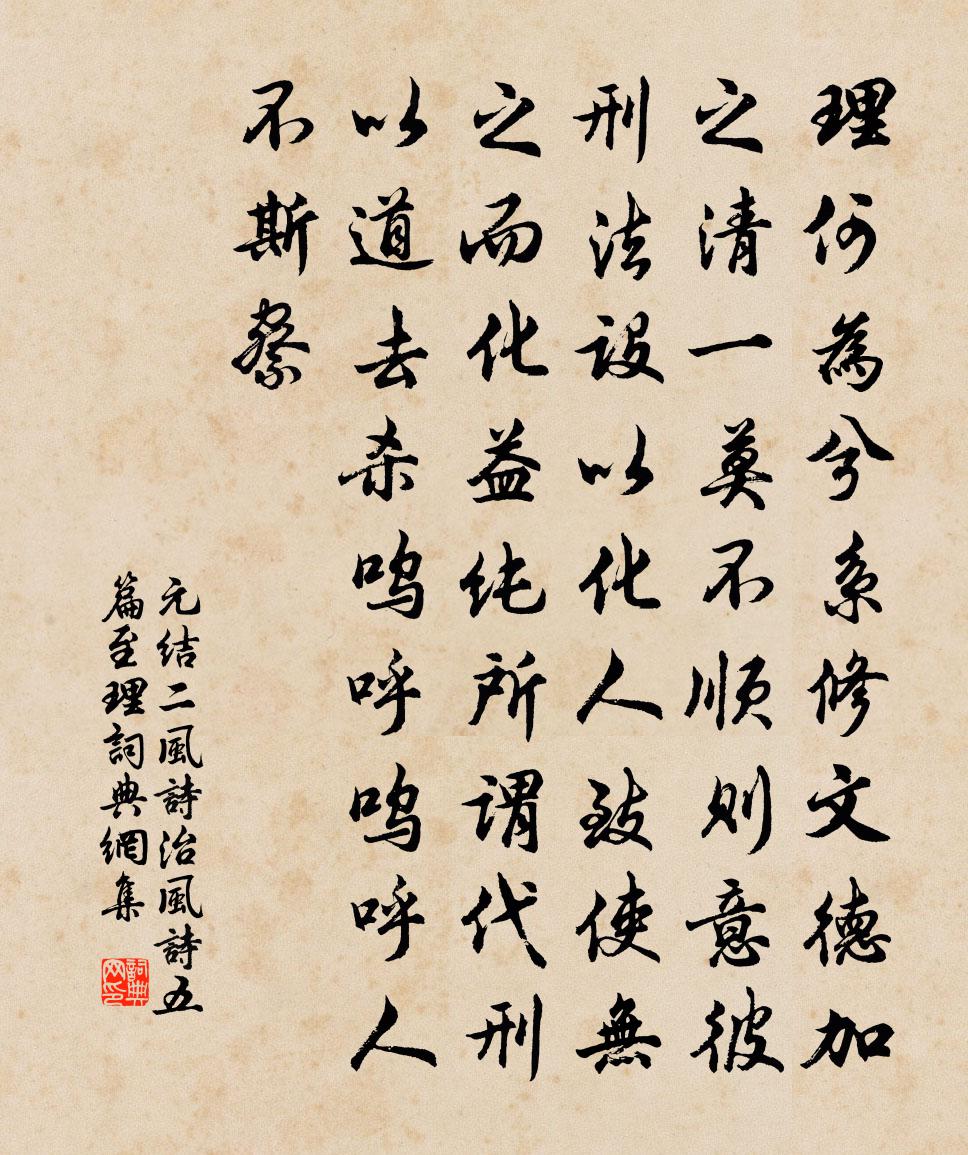 理何為兮系修文德加
之清一莫不順則意彼
刑法設以化人致使無
之而化益纯所謂代刑
以道去杀鸣呼鸣呼人
不斯察
元结二風詩治風詩五
篇至理詞典網集
詞典
网印